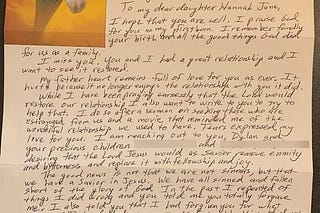 To my dear daughter Hannah Jane,
I hope that you are well. I praise God
for you as my firstborn. I remember fondly
your birth and all the good things God did
for us as a family.
I miss you. You and I had a great relationship and I
want to see it restored.
My father heart remains full of love for you as ever. It
hurts because it no longer enjoys the relationship with you it did.
While I have been praying earnestly that the Lord would
restore our relationship I also want to write you to try to
help that. I also after seeing those who are
estranged from us and a movie that reminded me of the
wonderful relationship we used to have. Tears expressed my
love for you. I am reaching out to you, Dylan and
your precious children and
desiring that the Lord Jesus would as Savior remove enmity
and bitterness and replace it with fellowship and joy.
The good news is not that we are not sinners but that
we have a Savior in Jesus. We have all sinned and fallen
short of the glory of God. In the past I repented of
things I did wrong and you told me you totally forgave
me. I also told you that I had forgiven you for what